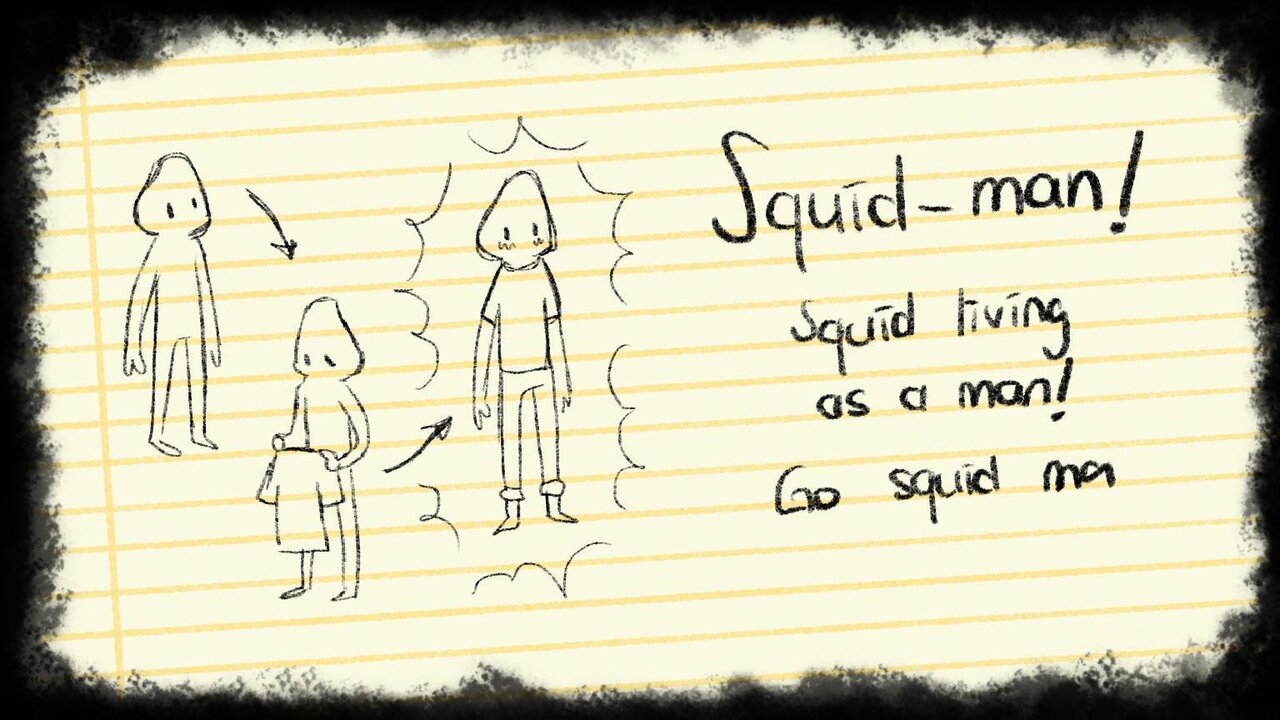 Squid-man!
Squid living
as a man!
Go squid ma